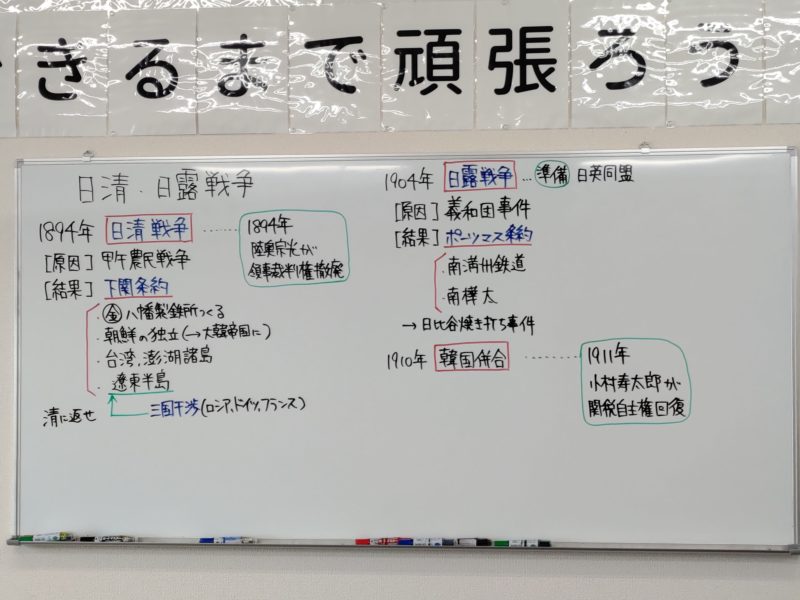 きるまで頑張ろう
日清・日露戦争
1894年 日清戦争 ………
[原因] 甲午農民戦争
[結果] 下関条約
・金 八幡製鉄所つくる
・朝鮮の独立(→大韓帝国に)
・台湾,澎湖諸島
・遼東半島
清に返せ
三国干渉(ロシア,ドイツ,フランス)
1894年
陸奥宗光が
領事裁判権撤廃
1904年 日露戦争 … 準備 日英同盟
[原因] 義和団事件
[結果] ポーツマス条約
・南満州鉄道
・南樺太
→ 日比谷焼き打ち事件
1910年 韓国併合 ………
1911年
小村寿太郎が
関税自主権回復